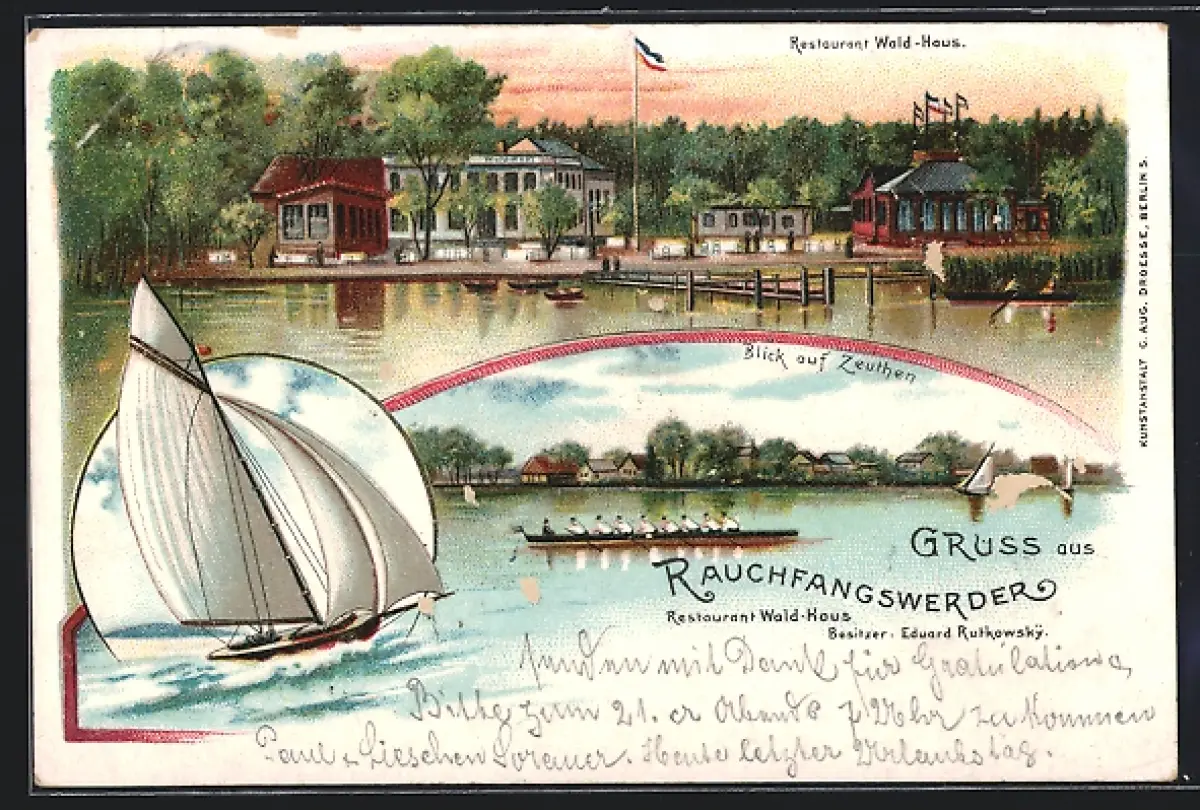 Restaurant Wald-Haus.
Blick auf Zeuthen
GRUSS aus
RAUCHFANGSWERDER
Restaurant Wald-Haus
Besitzer: Eduard Rutkowský.
senden mit Dank für Gratulation,
Bitte zum 21. cr Abends 7 Uhr zu kommen
Paul & Lieschen Sorauer. Heute letzter Urlaubstag.
KUNSTANSTALT C. AUG. DROESSE, BERLIN S.